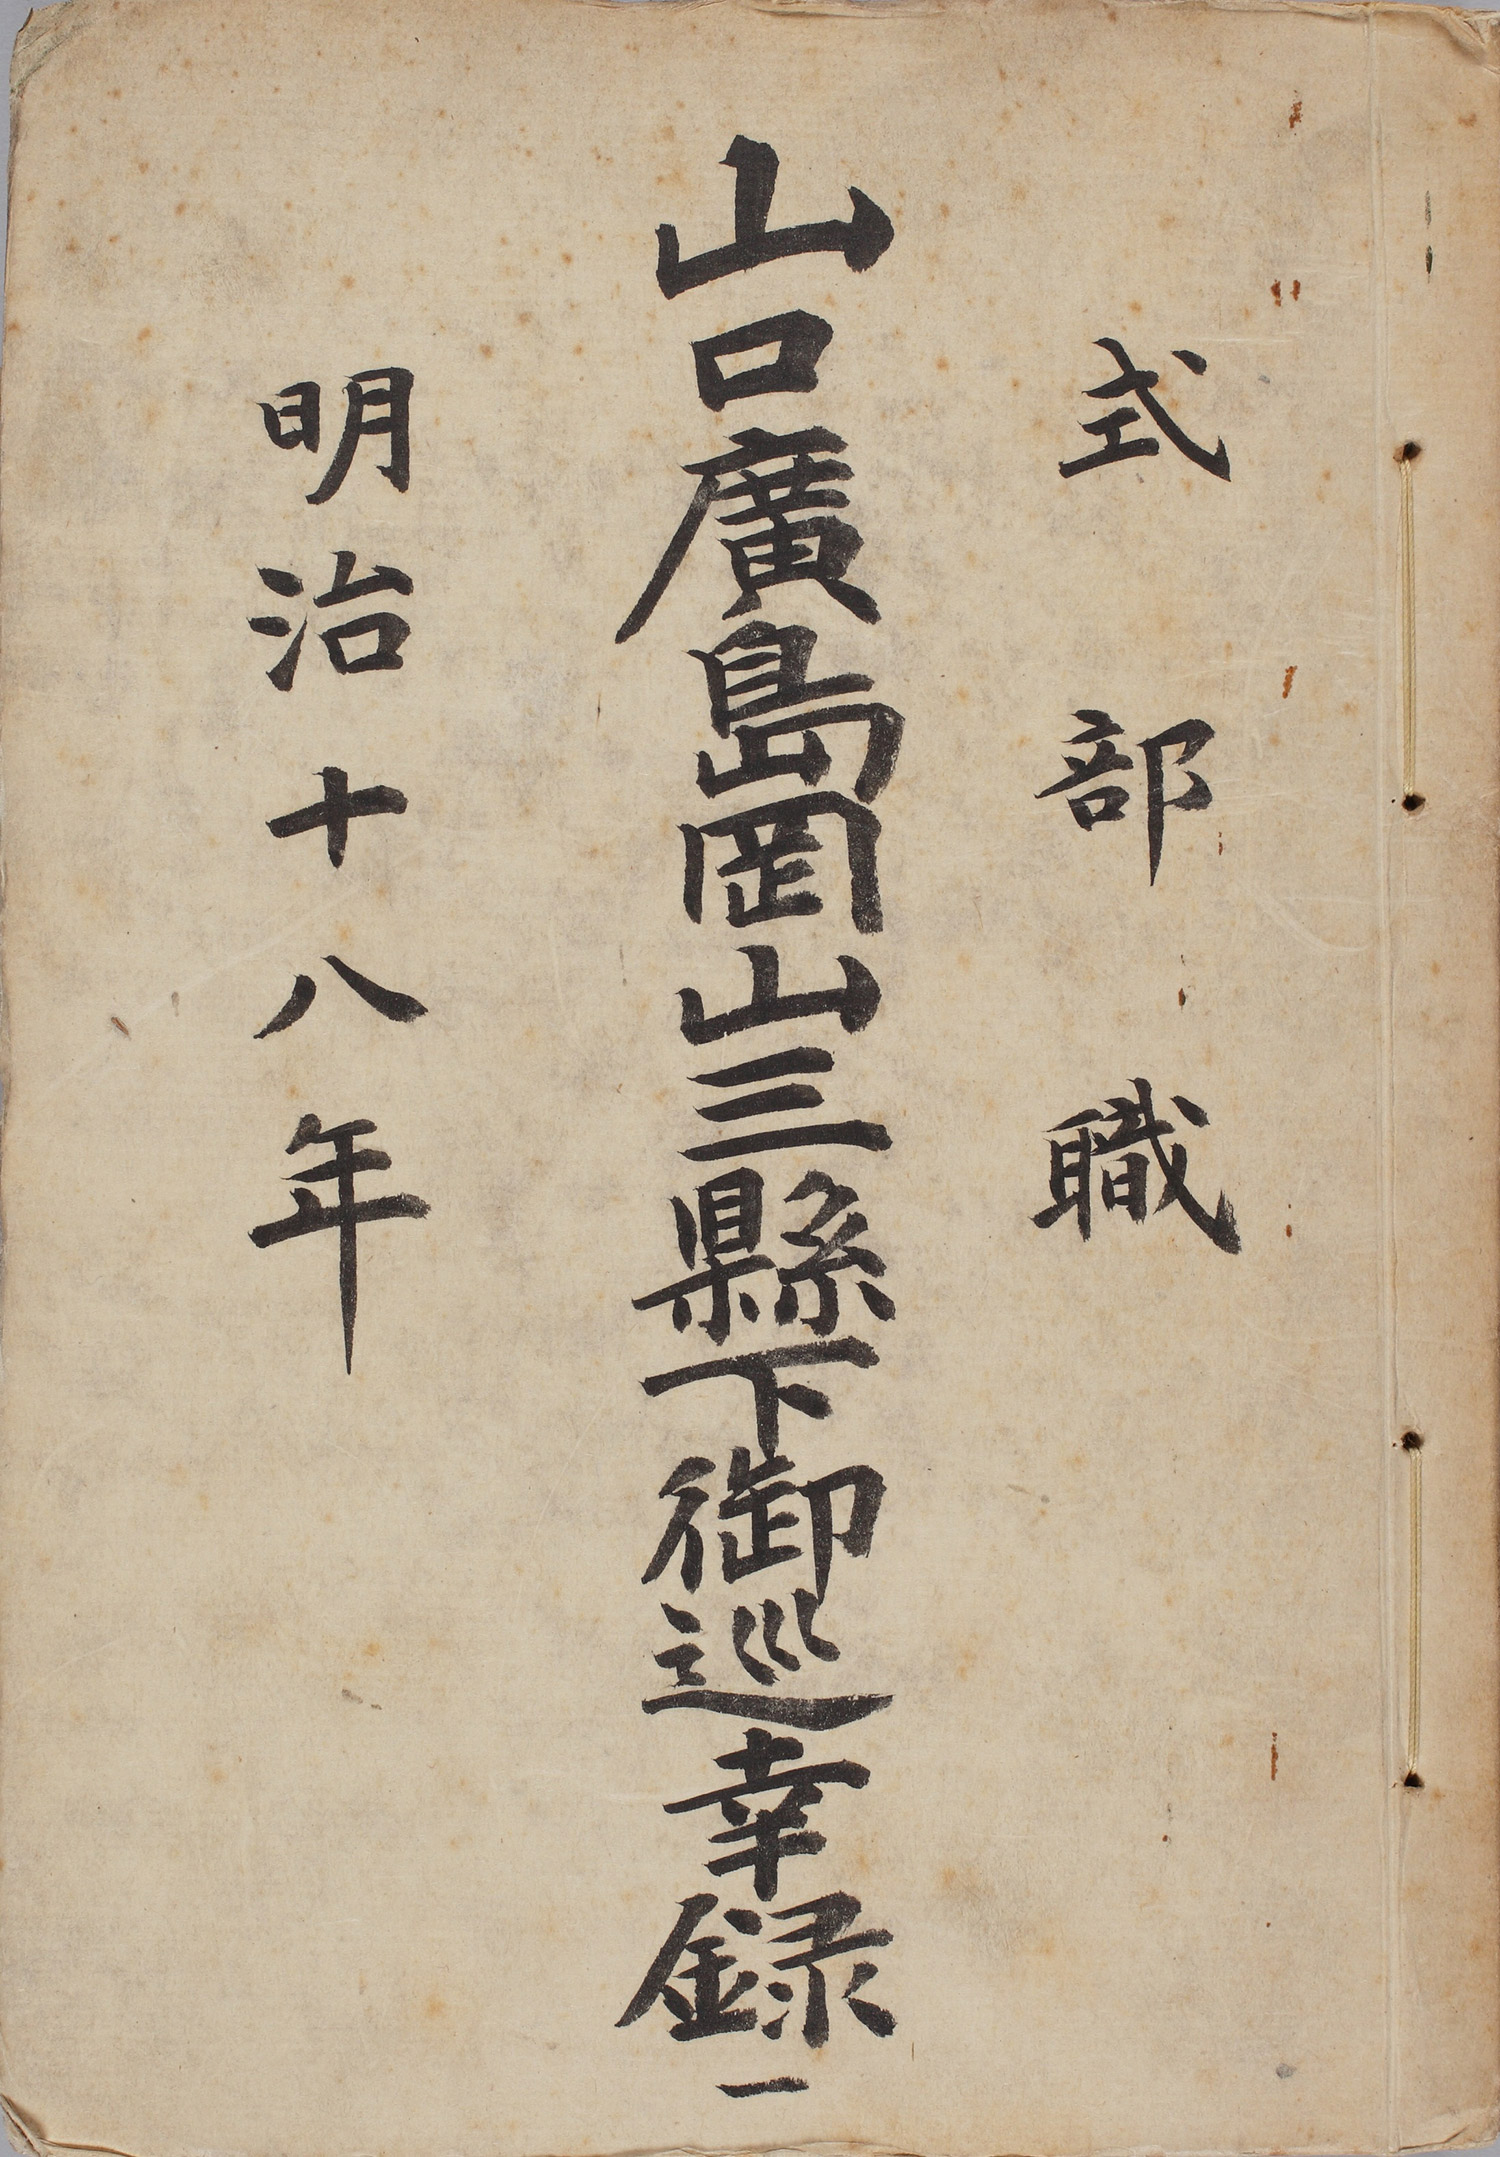 式部職
山口廣島岡山三縣下御巡幸録一
明治十八年